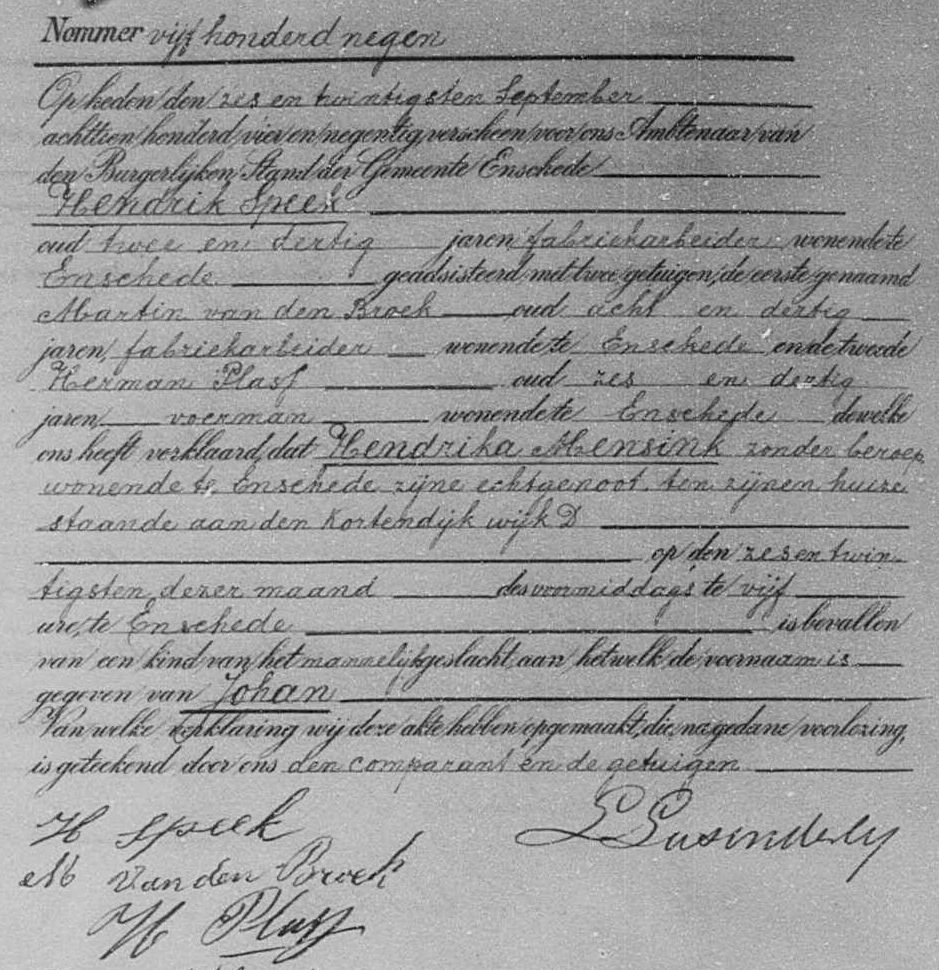 Nommer vijf honderd negen
Op heden den zes en twintigsten September
achttien honderd vier en negentig, verscheen voor ons Ambtenaar van
den Burgerlijken Stand der Gemeente Enschede
Hendrik Speek
oud twee en dertig jaren, fabriekarbeider wonende te
Enschede geadsisteerd met twee getuigen, de eerste genaamd
Martin van den Broek oud acht en dertig
jaren, fabriekarbeider wonende te Enschede en de tweede
Herman Plasf oud zes en dertig
jaren voerman wonende te Enschede dewelke
ons heeft verklaard, dat Hendrika Mensink zonder beroep
wonende te Enschede zijne echtgenoot ten zijnen huize
staande aan den Kortendijk wijk D
op den zes en twin
tigsten dezer maand des voormiddags te vijf
ure, te Enschede is bevallen
van een kind van het mannelijk geslacht aan hetwelk de voornaam is
gegeven van Johan
Van welke verklaring wij deze akte hebben opgemaakt, die, na gedane voorlezing,
is geteekend door ons den comparant en de getuigen
H Speek
M Van den Broek
H Plasf